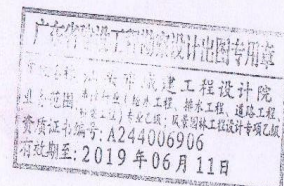 广东省建设工程勘察设计出图专用章
城建工程设计院
业务范围:市政行业(给水工程、排水工程、道路工程、
专业乙级;风景园林工程设计专项乙级
资质证书编号:A244006906
有效期至:2019年06月11日